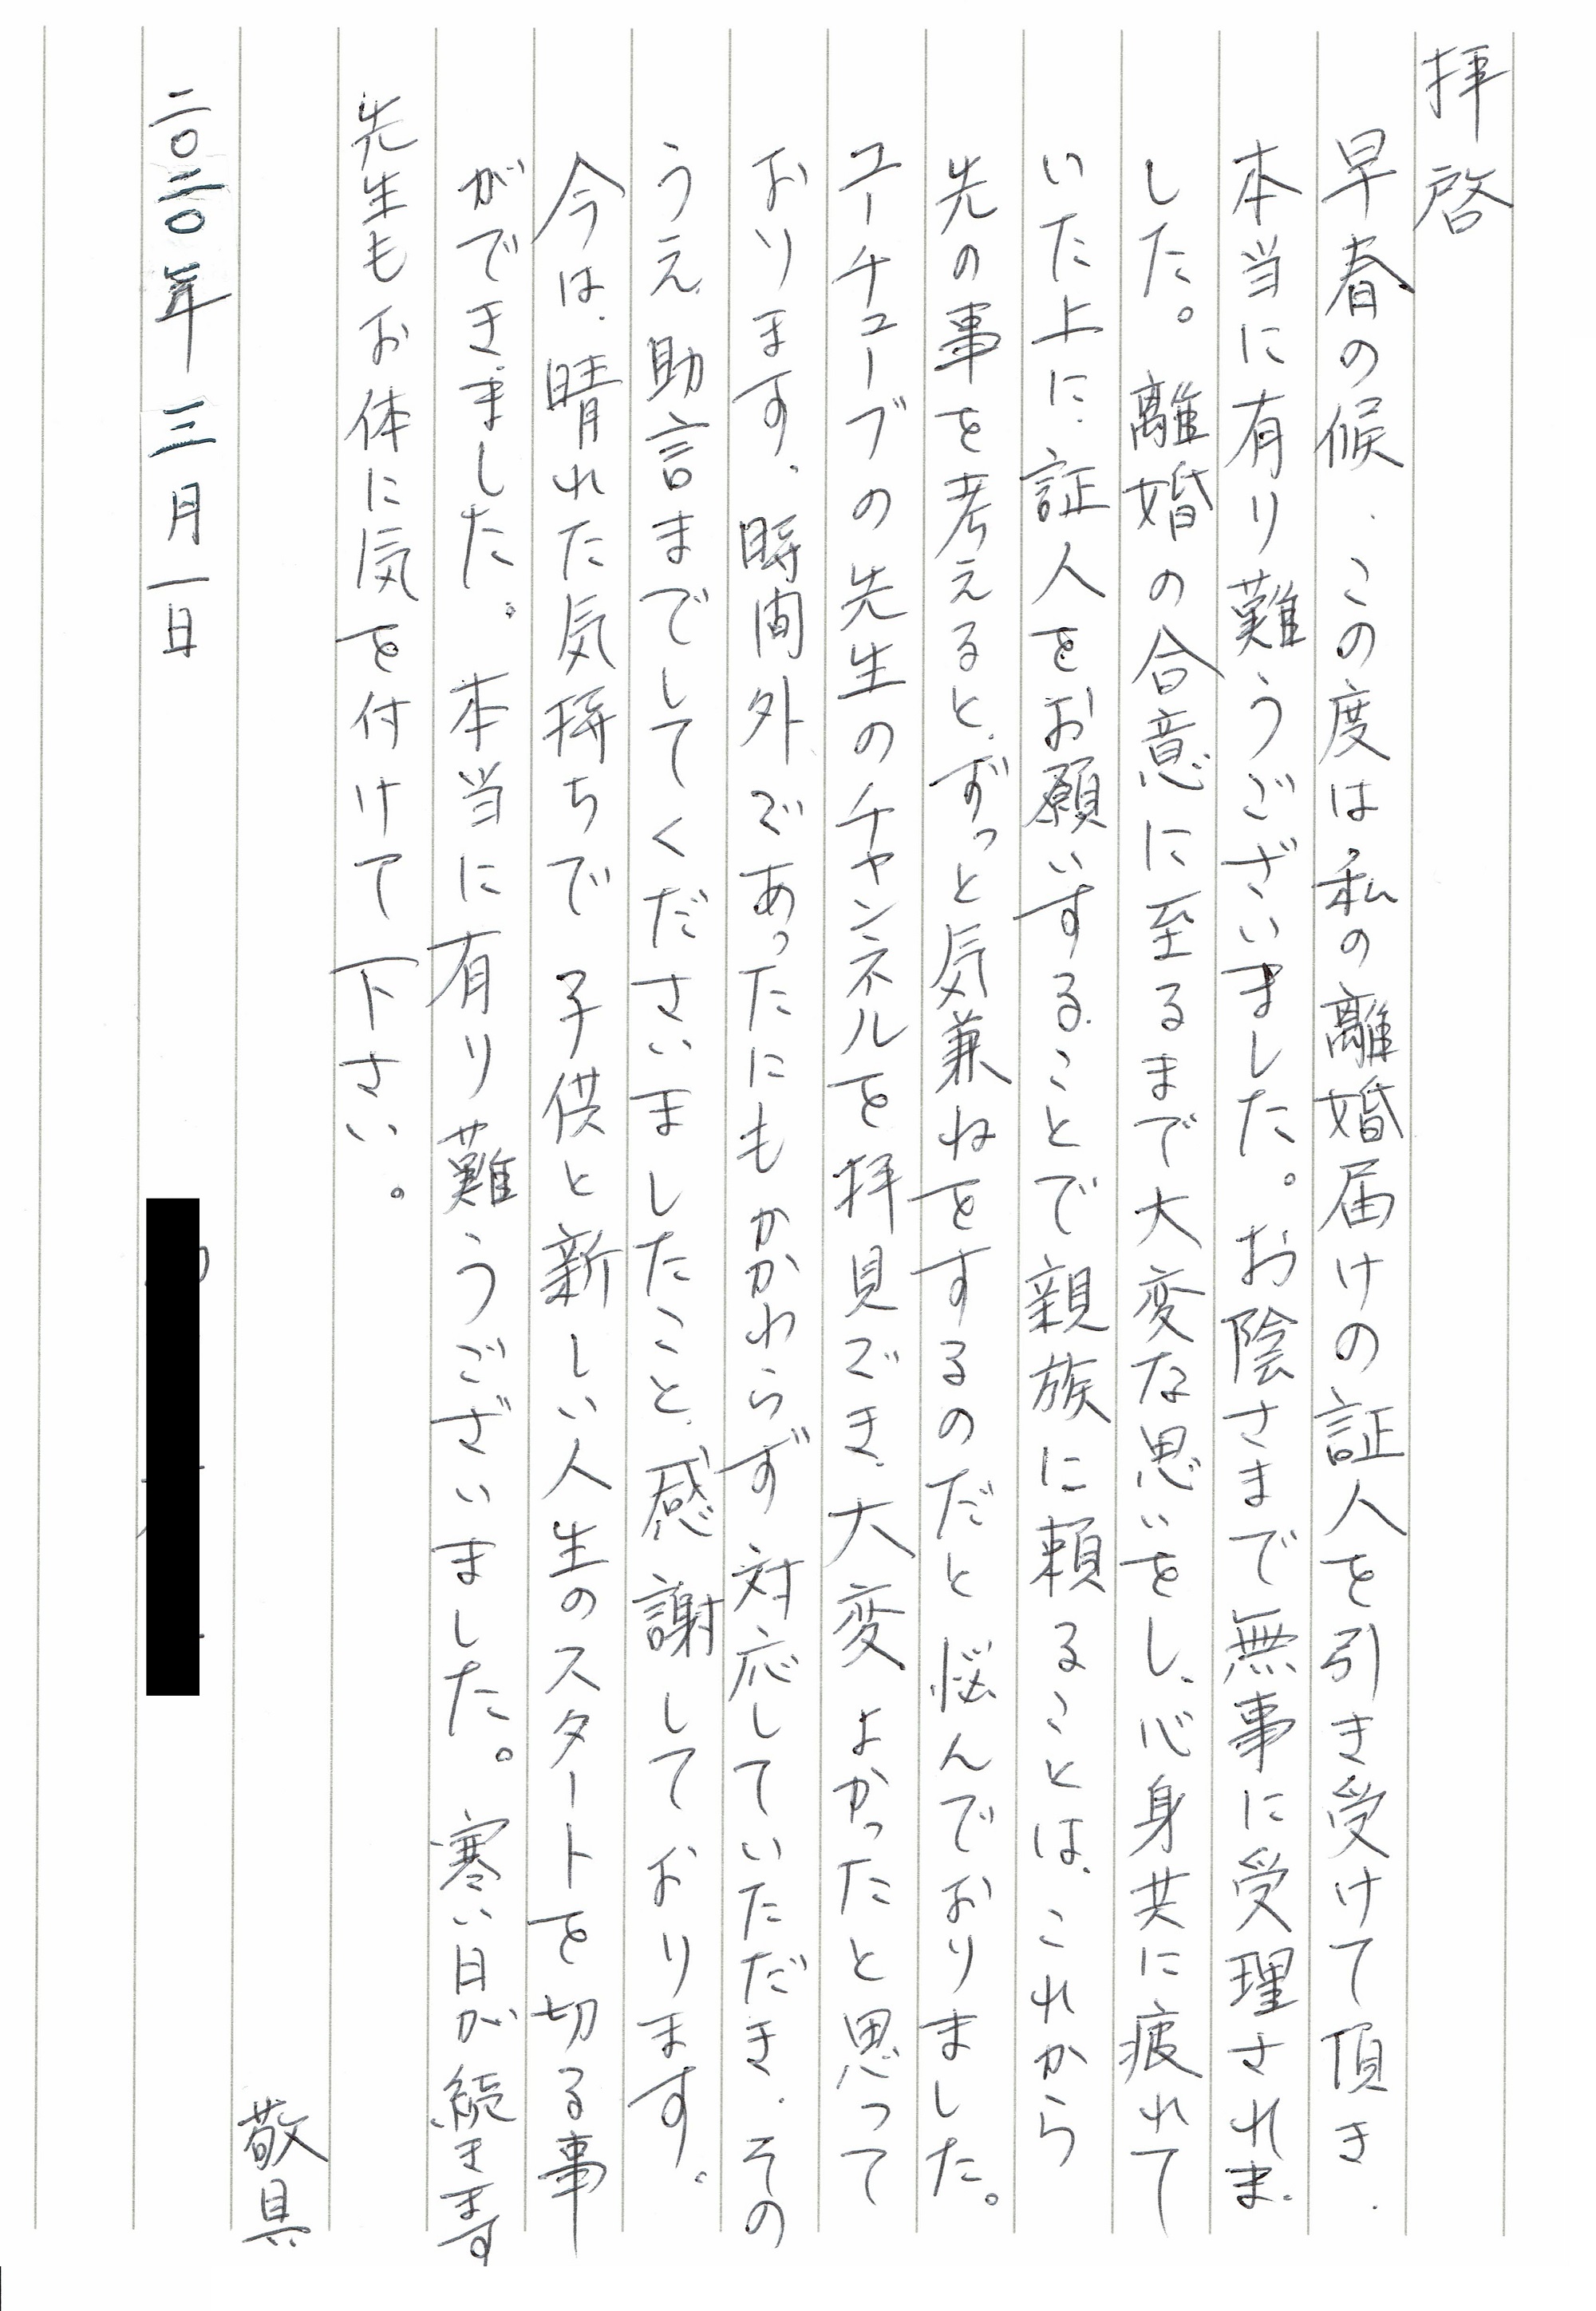 拝啓
早春の候、この度は私の離婚届けの証人を引き受けて頂き、
本当に有り難うございました。お陰さまで無事に受理されま
した。離婚の合意に至るまで大変な思いをし、心身共に疲れて
いた上に、証人をお願いすることで親族に頼ることは、これから
先の事を考えると、ずっと気兼ねをするのだと悩んでおりました。
ユーチューブの先生のチャンネルを拝見でき、大変よかったと思って
おります、時間外であったにもかかわらず対応していただき、その
うえ、助言までしてくださいましたこと、感謝しております。
今は、晴れた気持ちで子供と新しい人生のスタートを切る事
ができました。本当に有り難うございました。寒い日が続きます
先生もお体に気を付けて下さい。
敬具
二〇二〇年三月一日